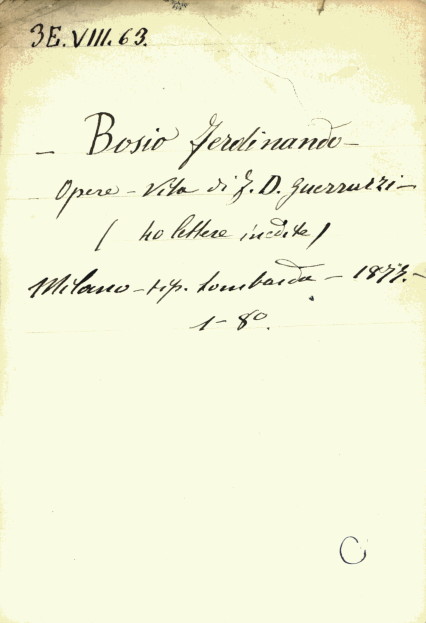 3E.VIII.63.
- Bosio Ferdinando -
Opere - Vita di F. D. Guerrazzi -
( 40 lettere inedite )
Milano - tip. Lombarda - 1877. -
1 - 8º.
C